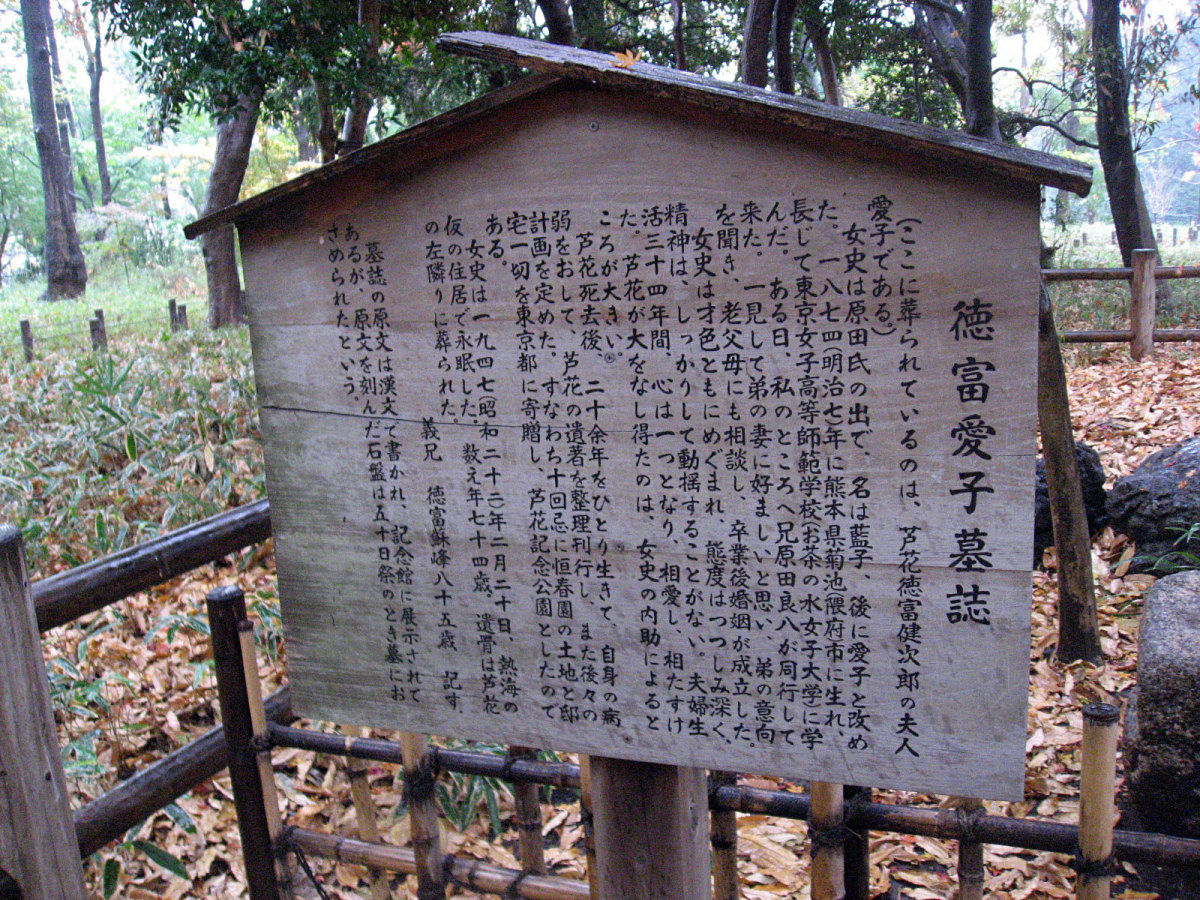 徳富愛子墓誌
(ここに葬られているのは、芦花徳富健次郎の夫人
愛子である。)
女史は原田氏の出で、名は藍子、後に愛子と改め
た。一八七四(明治七)年に熊本県菊池(隈府市に生れ、
長じて東京女子高等師範学校(お茶の水女子大学に学
んだ。ある日、私のところへ兄原田良八が同行して
来た。一見して弟の妻に好ましいと思い、弟の意向
を聞き、老父母にも相談し、卒業後婚姻が成立した。
女史は才色ともにめぐまれ、態度はつつしみ深く、
精神は、しっかりして動揺することがない。夫婦生
活三十四年間、心は一つとなり、相愛し、相たすけ
た。芦花が大をなし得たのは、女史の内助によると
ころが大きい。
芦花死去後、二十余年をひとり生きて、自身の病
弱をおして、芦花の遺著を整理刊行し、また後々の
計画を定めた。すなわち十回忌に恒春園の土地と邸
宅一切を東京都に寄贈し、芦花記念公園としたので
ある。
女史は一九四七(昭和二十二)年二月二十日、熱海の
仮の住居で永眠した。数え年七十四歳、遺骨は芦花
の左隣りに葬られた。
義兄 徳富蘇峰八十五歳 記す
墓誌の原文は漢文で書かれ、記念館に展示されて
あるが、原文を刻んだ石盤は五十日祭のとき墓にお
さめられたという。